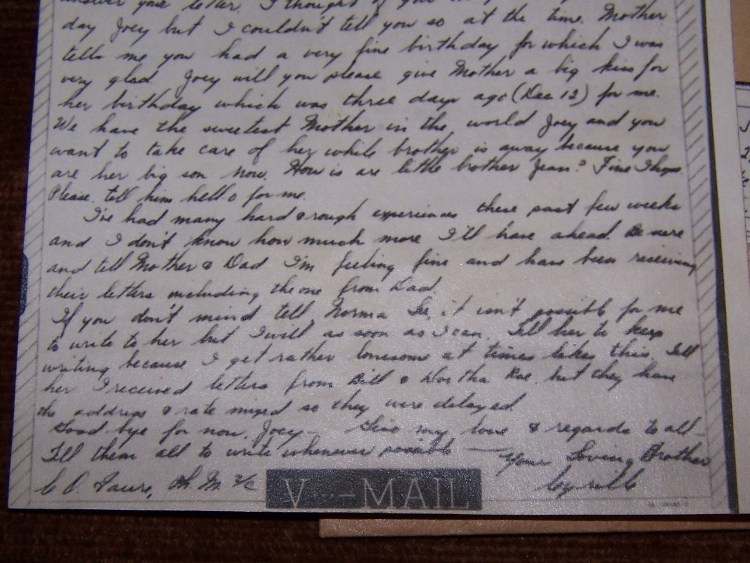 answer your letter. I thought of you
day Joey but I couldn't tell you so at the time. Mother
tells me you had a very fine birthday for which I was
very glad. Joey will you please give Mother a big kiss for
her birthday which was three days ago (Dec 12) for me.
We have the sweetest Mother in the world Joey and you
want to take care of her while brother is away because you
are her big son now. How is are little brother Jean? Fine I hope.
Please tell him hello for me.
I've had many hard & rough experiences these past few weeks
and I don't know how much more I'll have ahead. Be sure
and tell Mother & Dad I'm feeling fine and have been receiving
their letters including the one from Dad.
If you don't mind tell Norma it isn't possible for me
to write to her but I will as soon as I can. Tell her to keep
writing because I get rather lonesome at times like this. Tell
her I received letters from Bill & Rae but they have
the address & rate mixed so they were delayed.
Good-bye for now, Joey - Give my love & regards to all
Tell them all to write whenever possible - Your Loving Brother
V···-MAIL